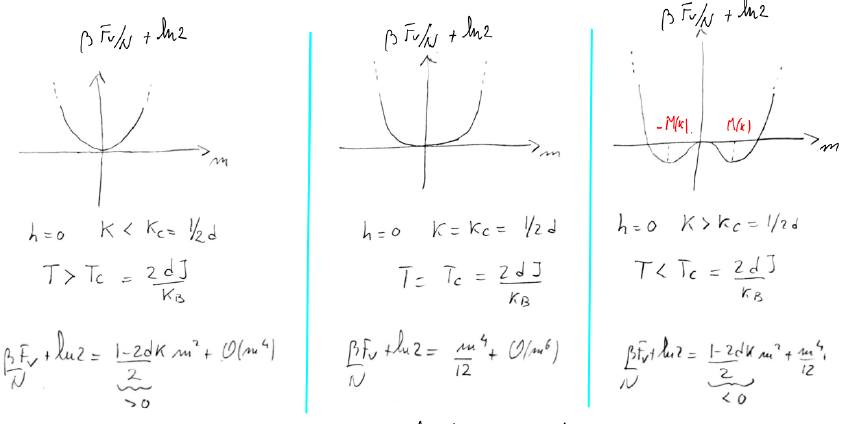 β Fv/N + ln2
m
h=0 K < Kc = 1/2d
T > Tc = 2dJ/KB
βFv/N + ln2 = (1-2dK)/2 m² + O(m⁴)
>0
β Fv/N + ln2
m
h=0 K = Kc = 1/2d
T = Tc = 2dJ/KB
βFv/N + ln2 = m⁴/12 + O(m⁶)
β Fv/N + ln2
-M(K) M(K)
m
h=0 K > Kc = 1/2d
T < Tc = 2dJ/KB
βFv/N + ln2 = (1-2dK)/2 m² + m⁴/12
<0